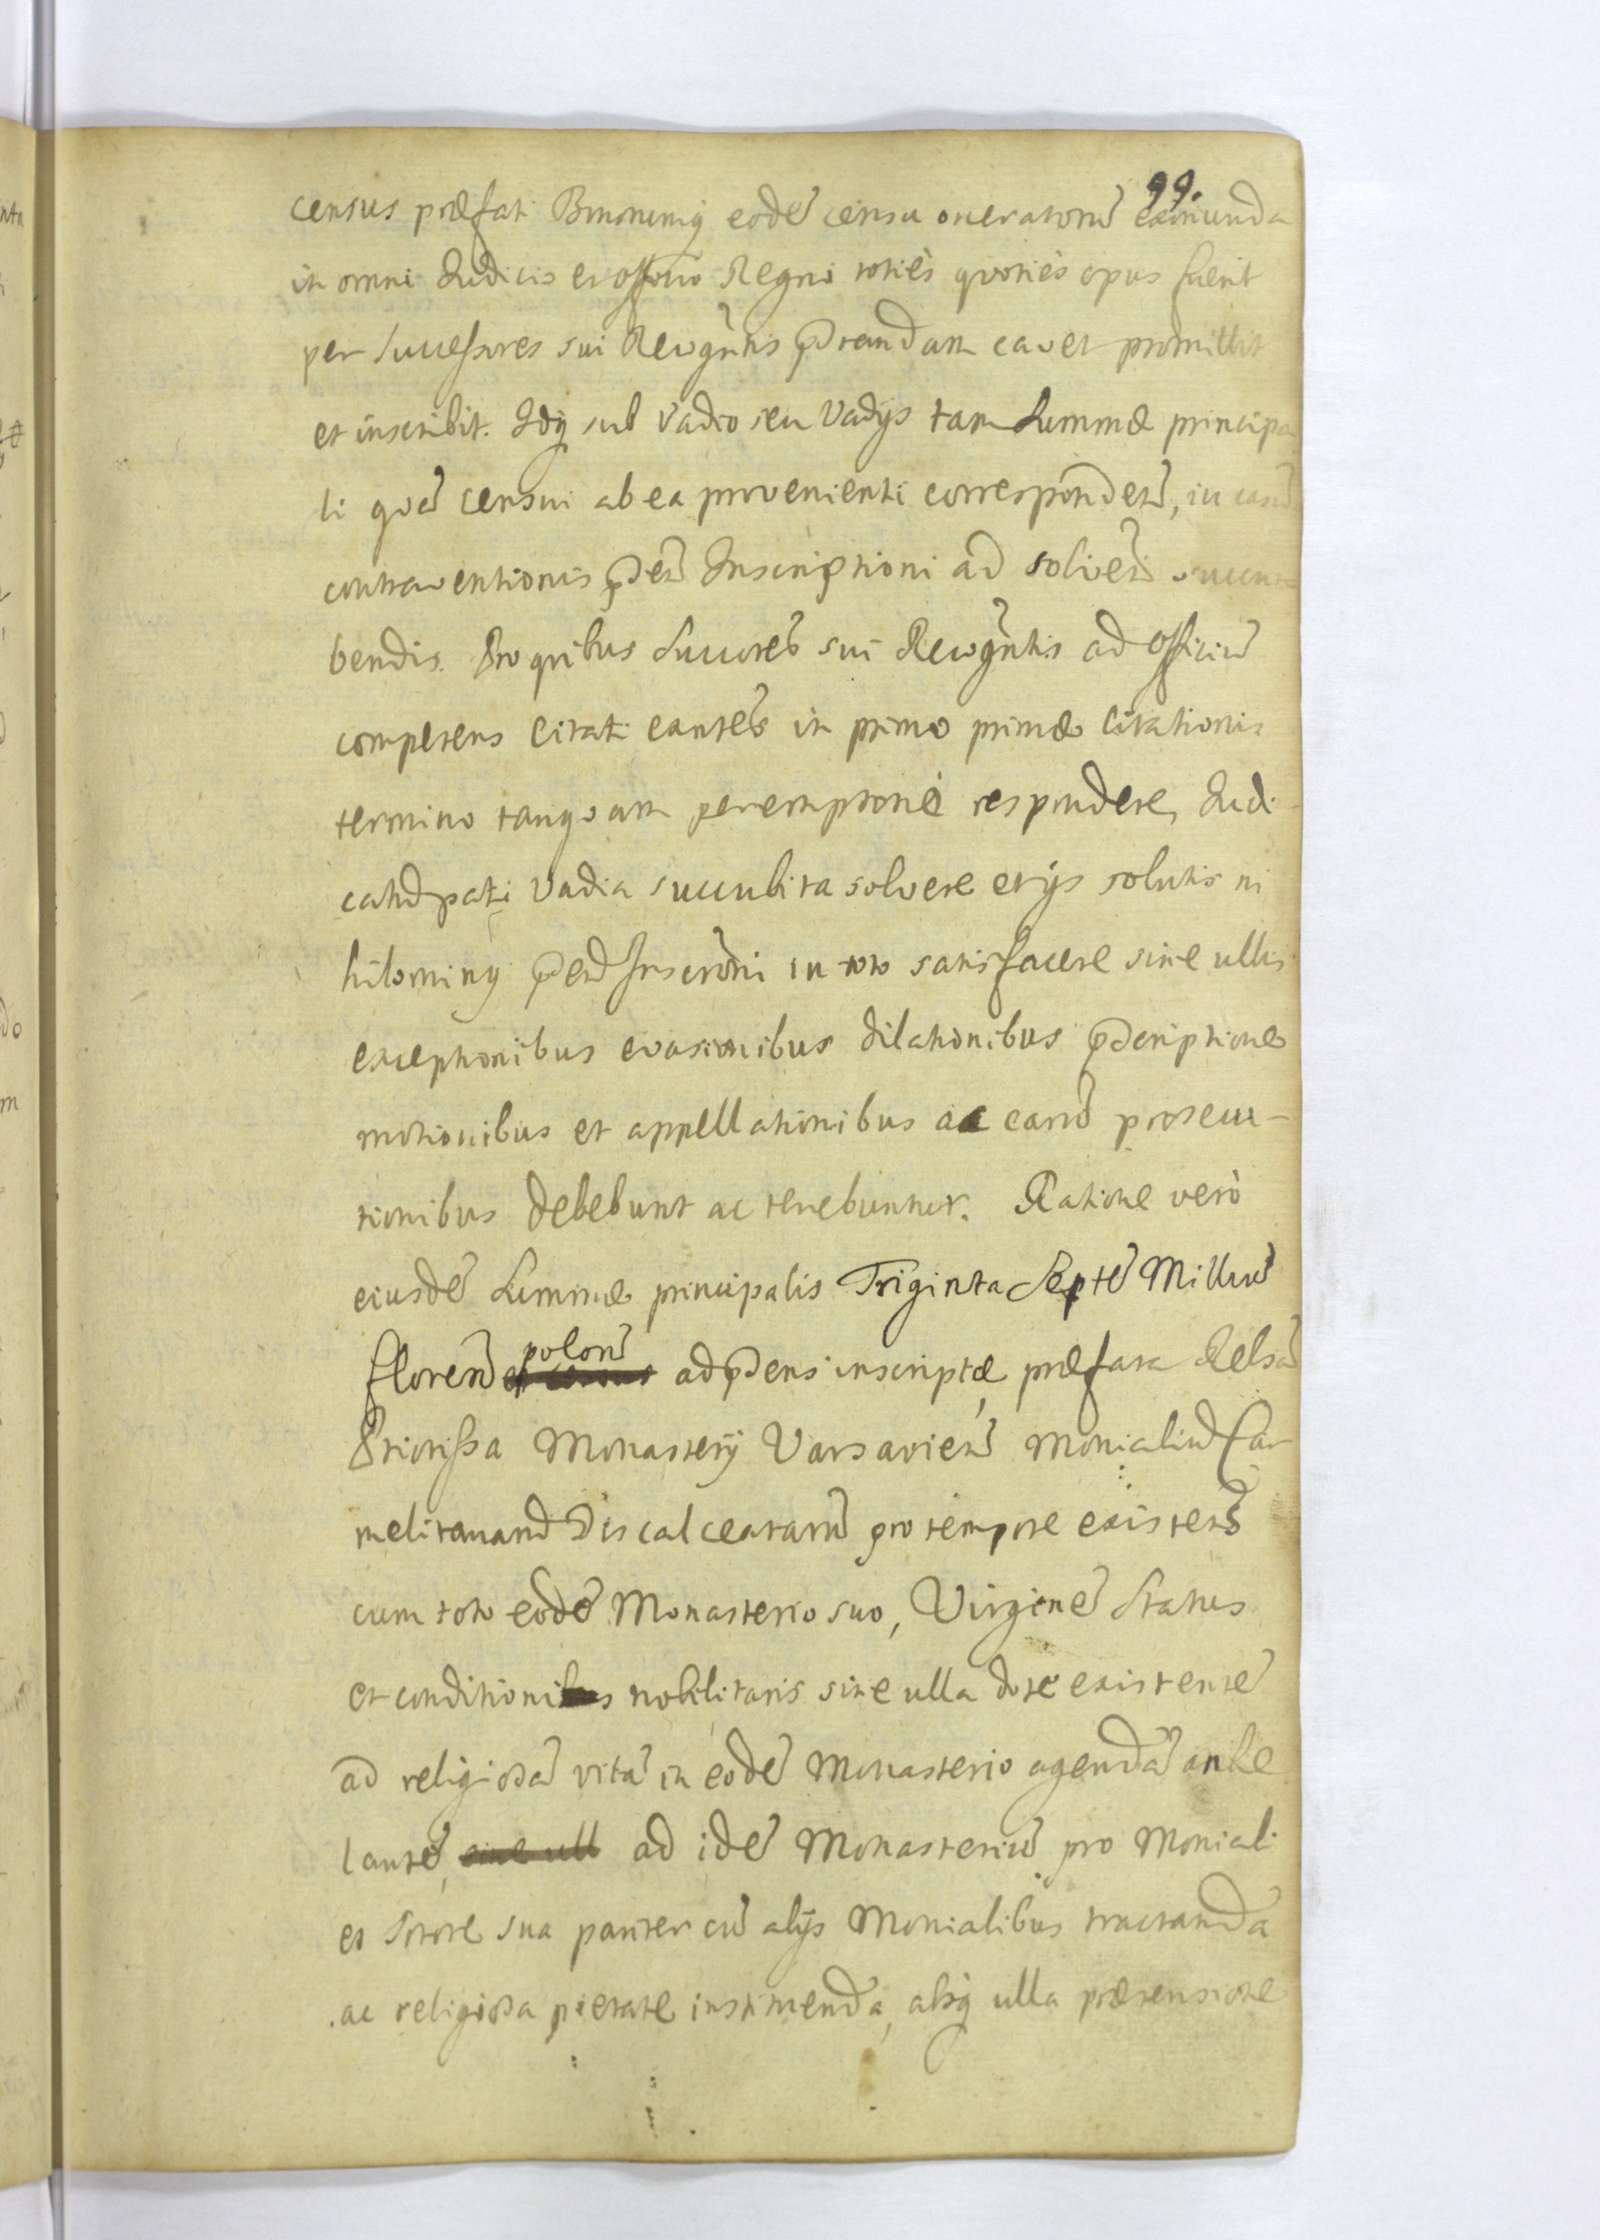 99.
census præfati Bonorumq eodē censu oneratorū eximenda
in omni Judicio et officio Regni totiès quoties opus fuerit
per Successores sui Recogntis præstandam cavet promittit
et inscribit. Idq sub vadio seu Vadijs tam Summæ principa
li quā censui ab ea provenienti corresponden̄, in casū
contraventionis pn̄ti Inscriptioni ad solven̄ succum
bendis. Pro quibus Succores sui Recogntis ad officiū
competens citati cantes in primo primæ Citationis
termino tanquam peremptoriè respondere, Judi
catū pati Vadia succubita solvere et ijs solutis ni
hilominq pn̄ti Inscrōni in toto satisfacere sine ullis
exceptionibus evasionibus dilationibus præscriptione
motionibus et appellationibus ac earū prosecu-
tionibus debebunt ac tenebuntur. Ratione verò
eiusdē Summæ principalis Triginta Septē Milliū
polon̄
floren̄ et census ad præsens inscriptæ, præfata Relsa
Priorissa Monasterij Varsavien̄ Monialiū Car
melitanarū Discalceatarū pro tempore existens
cum toto eodē Monasterio suo, Virginē Status
et conditionibus nobilitaris sine ulla dote existentē
ad religiosā vitā in eodē Monasterio agendā anhe
lantē, sine ull ad idē Monasteriū pro Moniali
et Sorore sua pariter cū alijs Monialibus tractandā
ac religiosa pietate instituendā, absq ulla prætensione